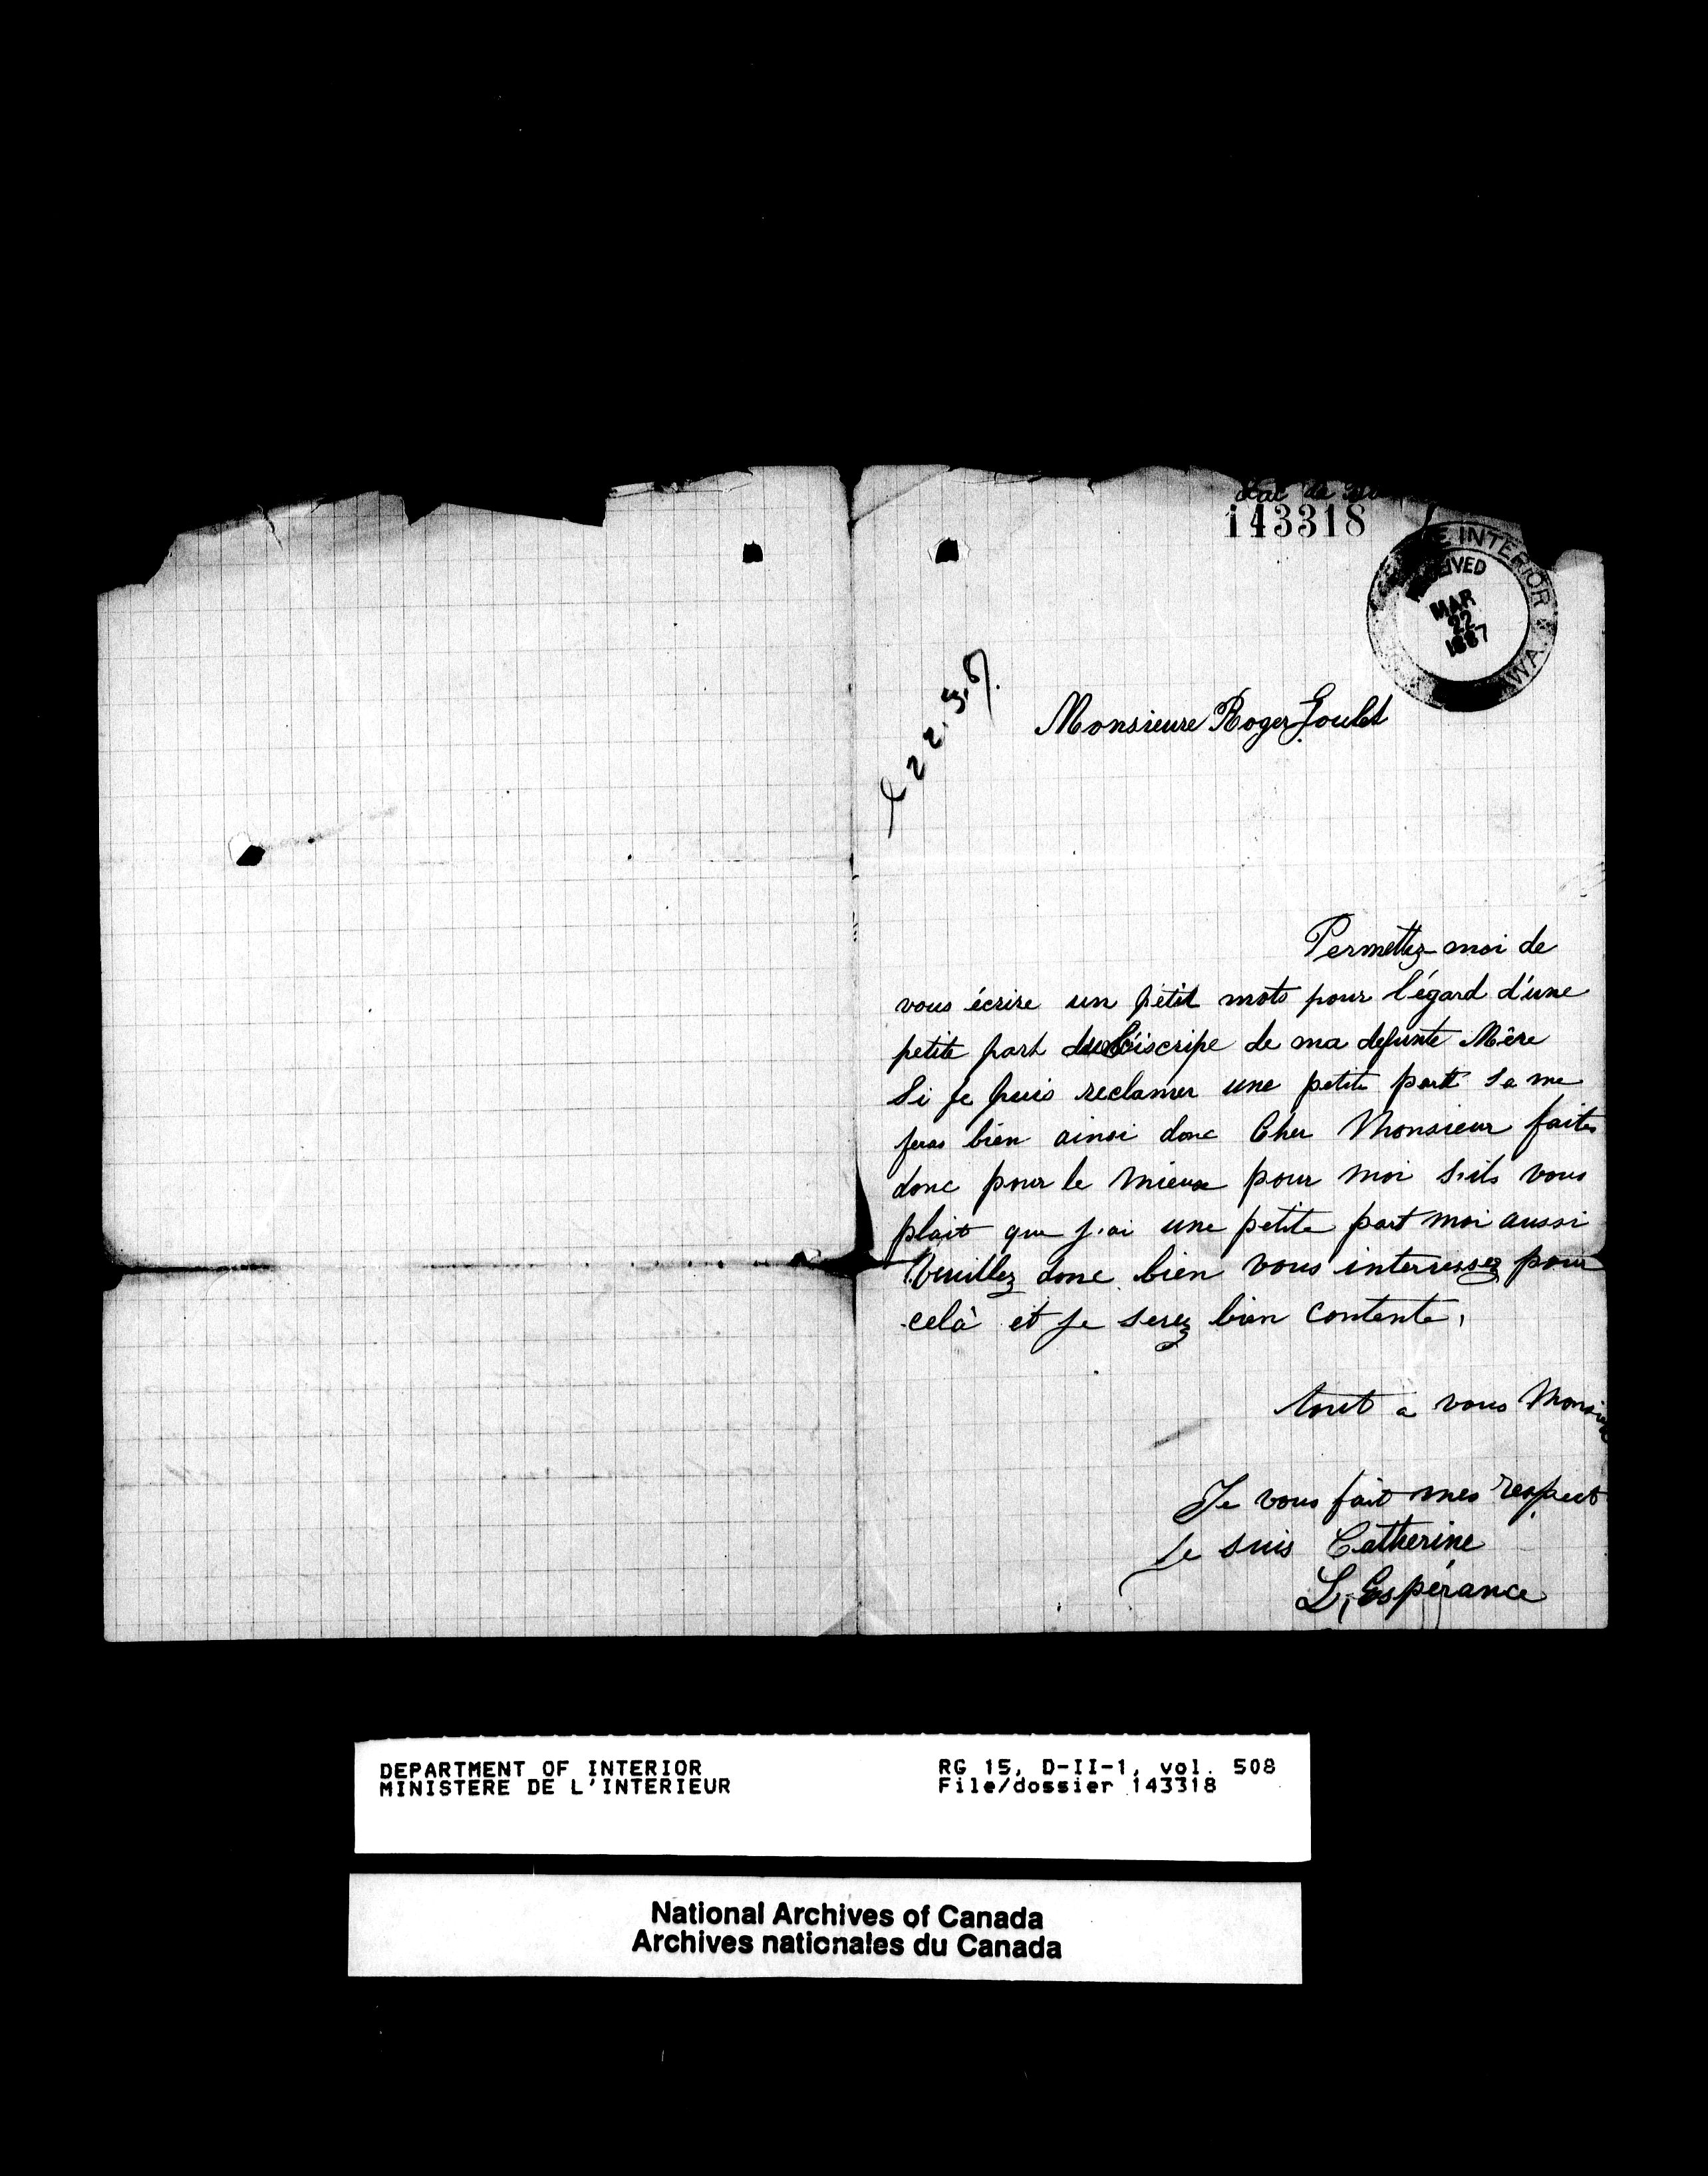 Lac la
143318
INTERIOR
MAR
22
1887
WA
22.3.87.
Monsieure Roger Goulet
Permettez-moi de
vous écrire un petit mots pour l'égard d'une
petite part de ma defunte Mêre
Si je puis reclamer une petite part sa me
feras bien ainsi donc Cher Monsieur faites
donc pour le mieux pour moi s'ils vous
plait que j'ai une petite part moi aussi
Veuillez donc bien vous interressez pour
celà et je serez bien contente,
tout a vous Monsieur
Je vous fait mes respect
Je suis Catherine
L,Espérance
DEPARTMENT OF INTERIOR
MINISTERE DE L'INTERIEUR
RG 15, D-II-1, vol. 508
File/dossier 143318
National Archives of Canada
Archives nationales du Canada